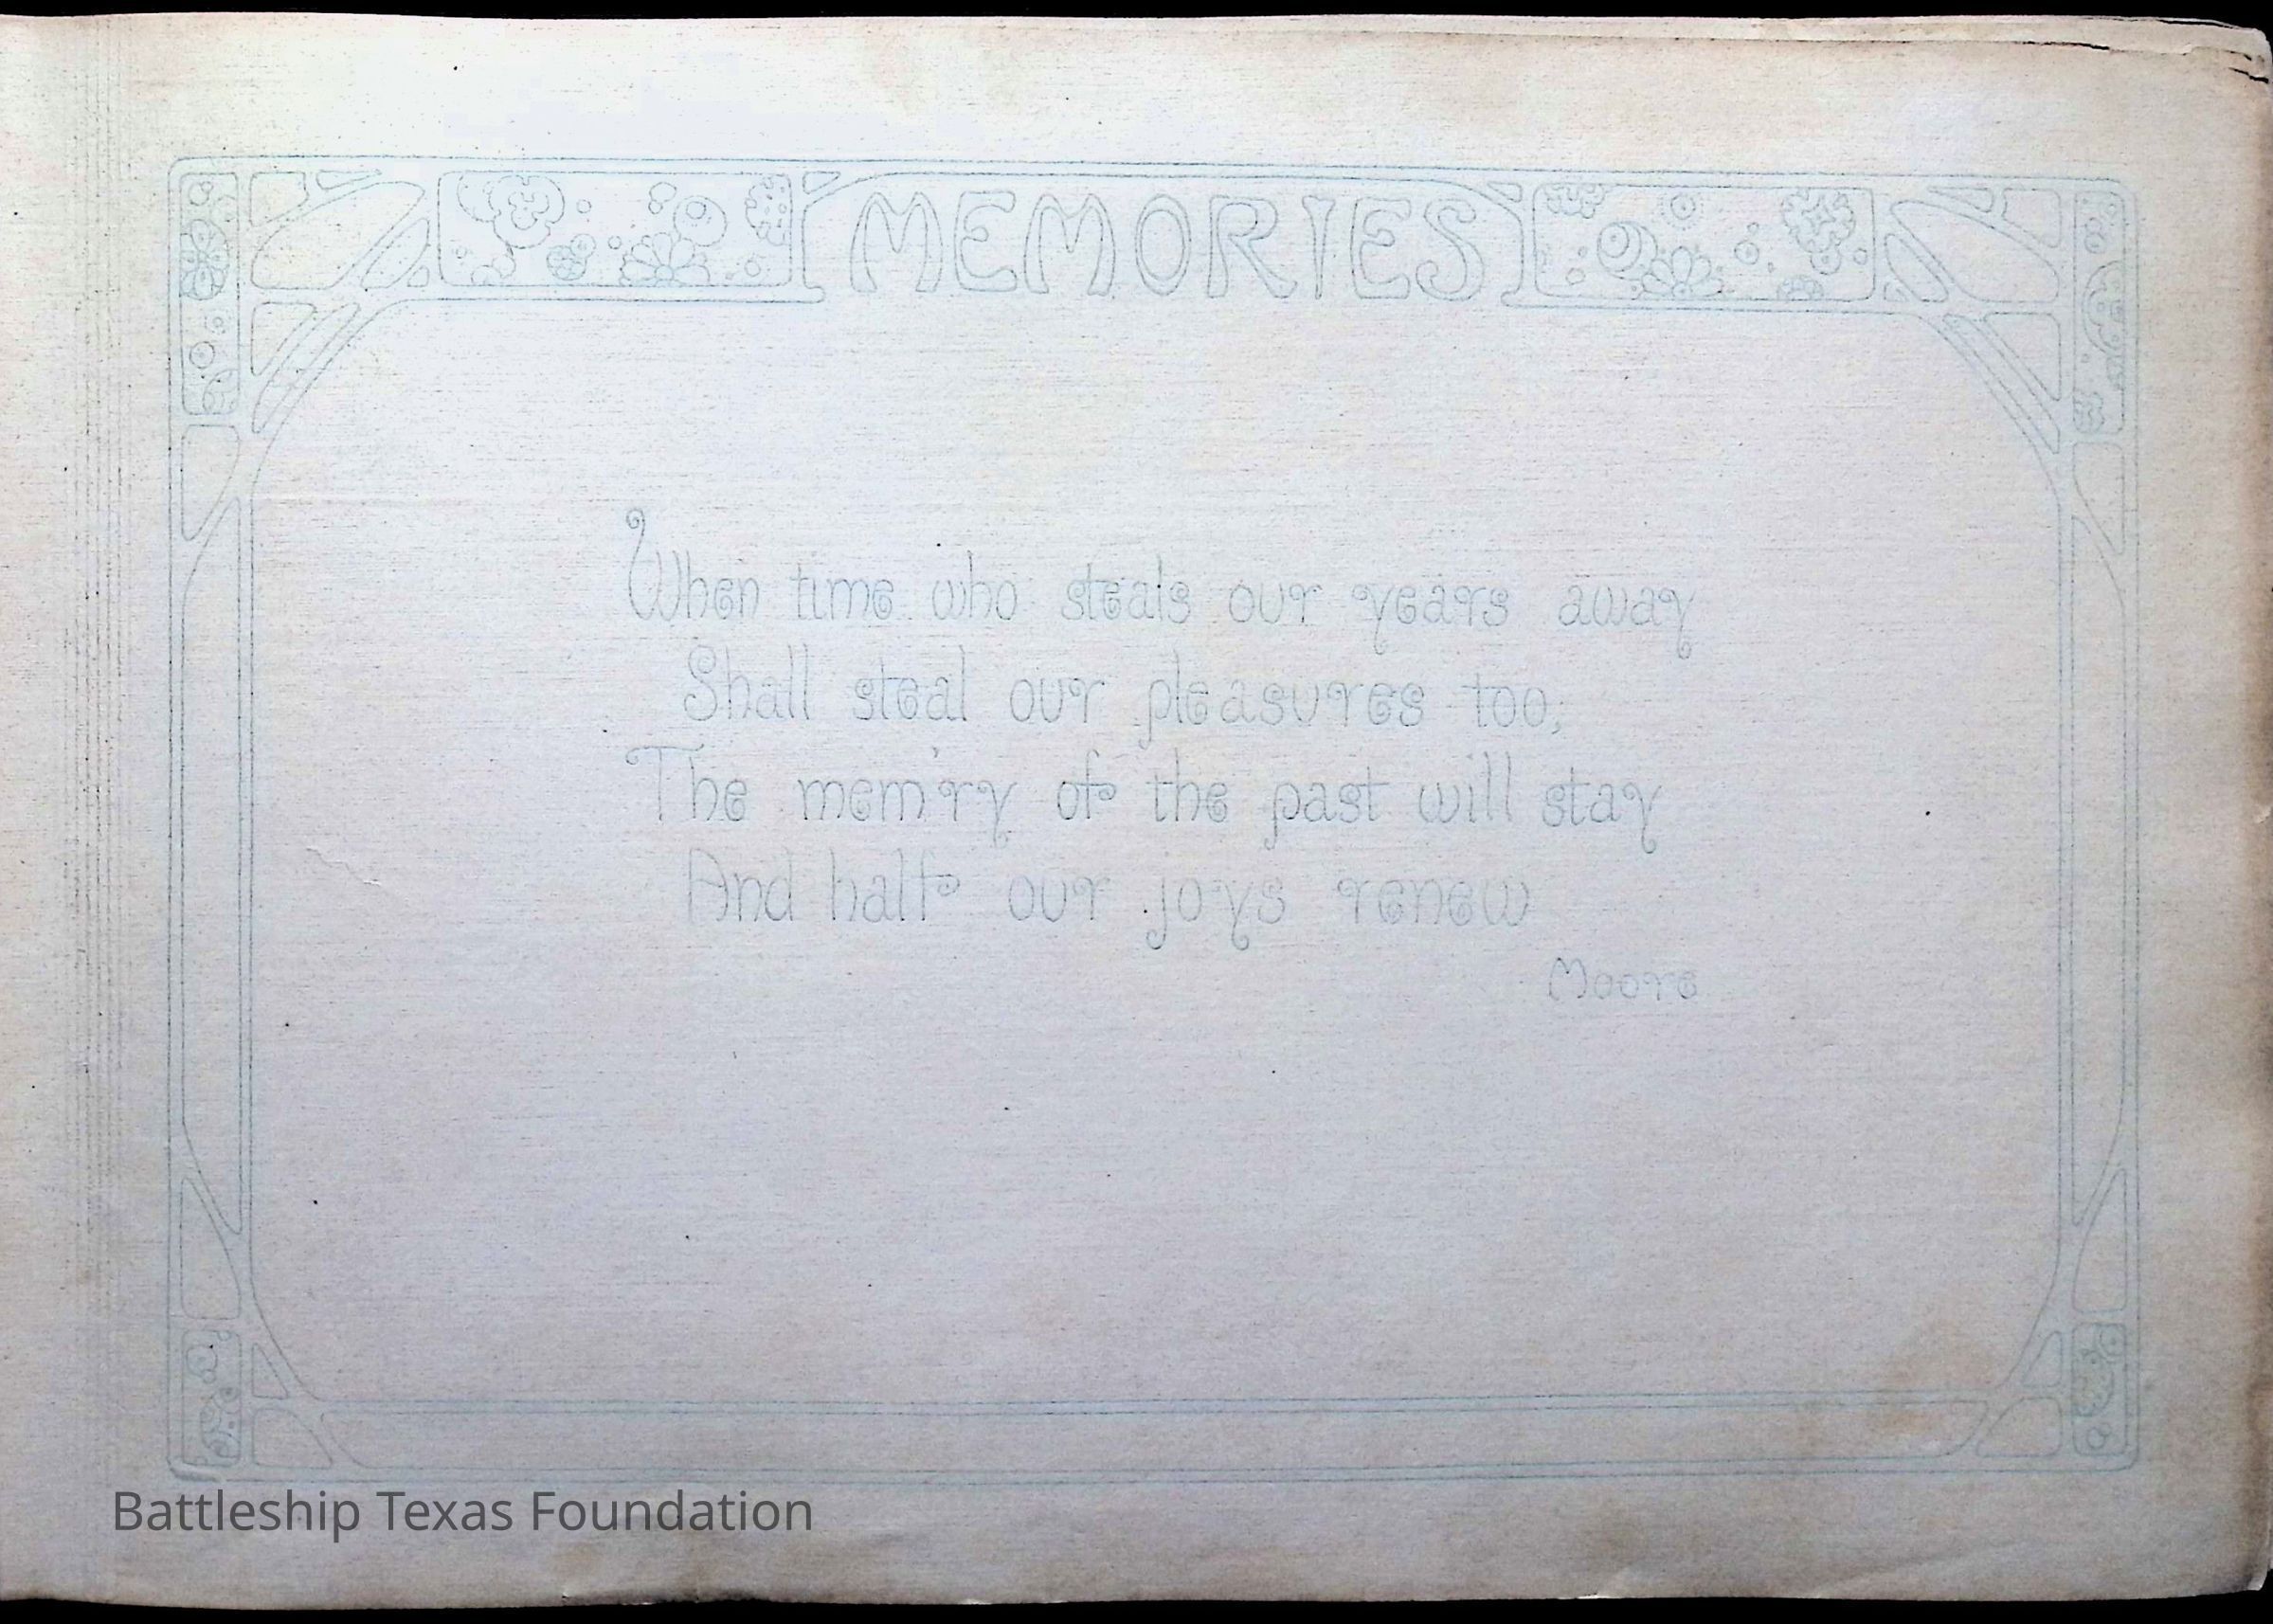 MEMORIES
When time who steals our years away
Shall steal our pleasures too,
The mem'ry of the past will stay
And half our joys renew
Moore
Battleship Texas Foundation